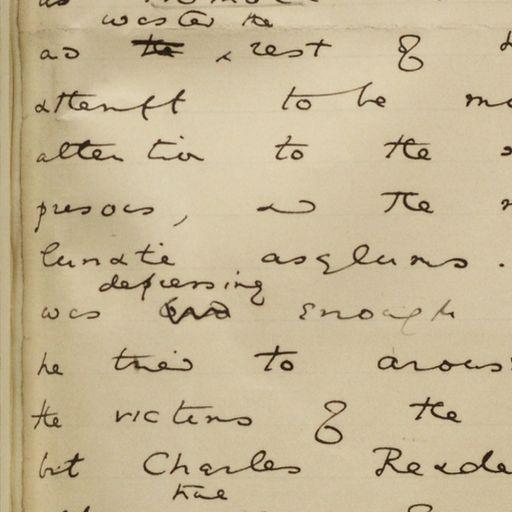 was to the
as the rest of
attempt to be
attention to the
prisons, and the
lunatic asylums.
depressing
was bad enough
he tried to arous
the victims of the
but Charles Reade
true